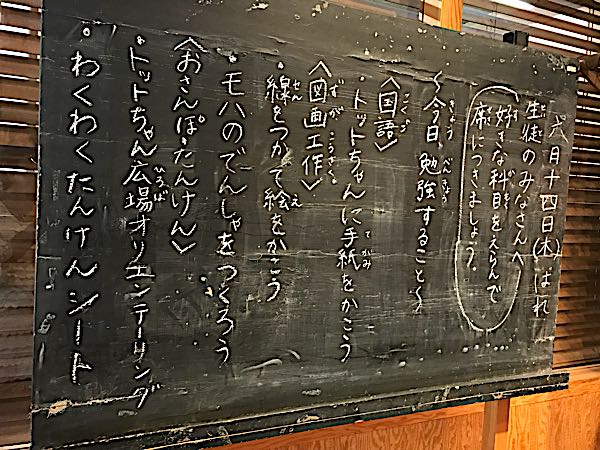 六月十四日(木)はれ
生徒のみなさんへ
好きな科目をえらんで
席につきましょう。
〜今日、勉強すること〜
〈国語〉
・トットちゃんに手紙をかこう
〈図画工作〉
・線をつかって絵をかこう
・モハのでんしゃをつくろう
〈おさんぽ・たんけん〉
・トットちゃん広場オリエンテーリング
・わくわくたんけんシート